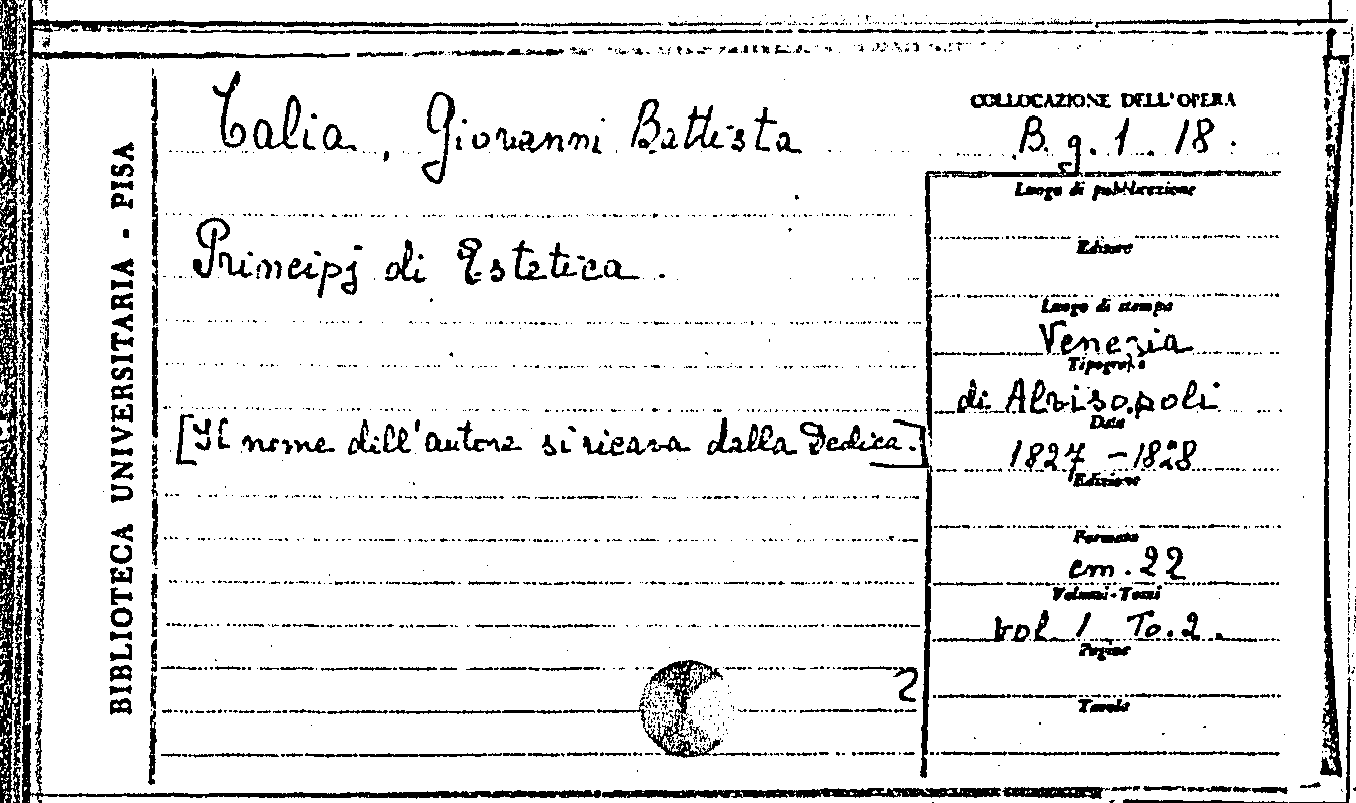 BIBLIOTECA UNIVERSITARIA - PISA
Talia, Giovanni Battista
Principj di Estetica.
[Il nome dell'autore si ricava dalla Dedica.]
2
COLLOCAZIONE DELL'OPERA
B. g. 1. 18.
Luogo di pubblicazione
Editore
Luogo di stampa
Venezia
Tipografo
di Alvisopoli
Data
1827 - 1828
Edizione
Formato
cm. 22
Volumi - Tomi
vol 1 To. 2.
Pagine
Tavole